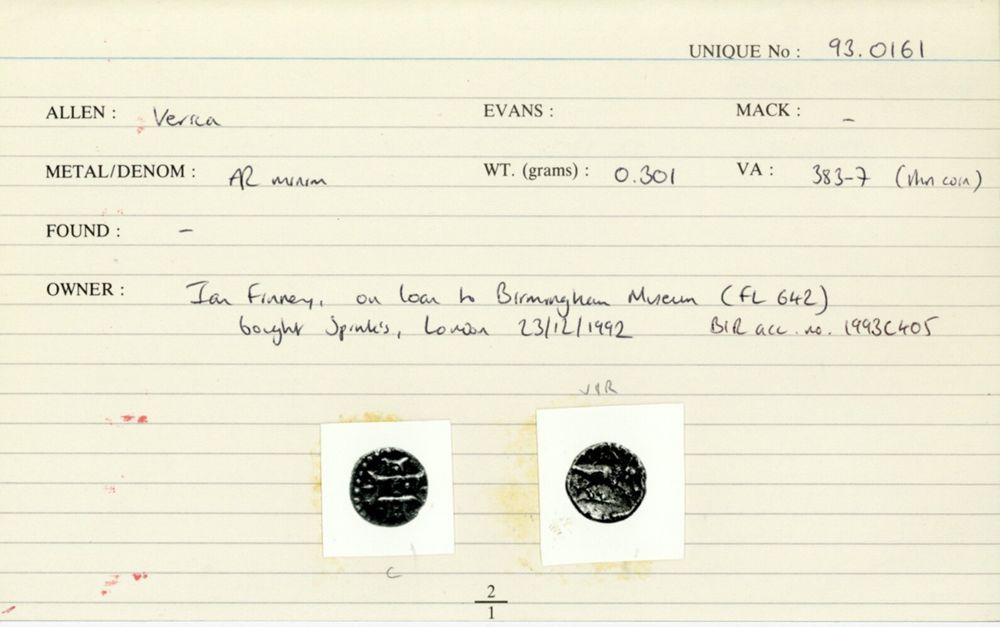 UNIQUE No : 93.0161
ALLEN : Verica EVANS : MACK : –
METAL/DENOM : AR minim WT. (grams) : 0.301 VA : 383-7 ( coin)
FOUND : –
OWNER : Ian Finney, on loan to Birmingham Museum (FL 642)
bought Spink's, London 23/12/1992 BIR acc. no. 1993C405
VIR
C
2
1